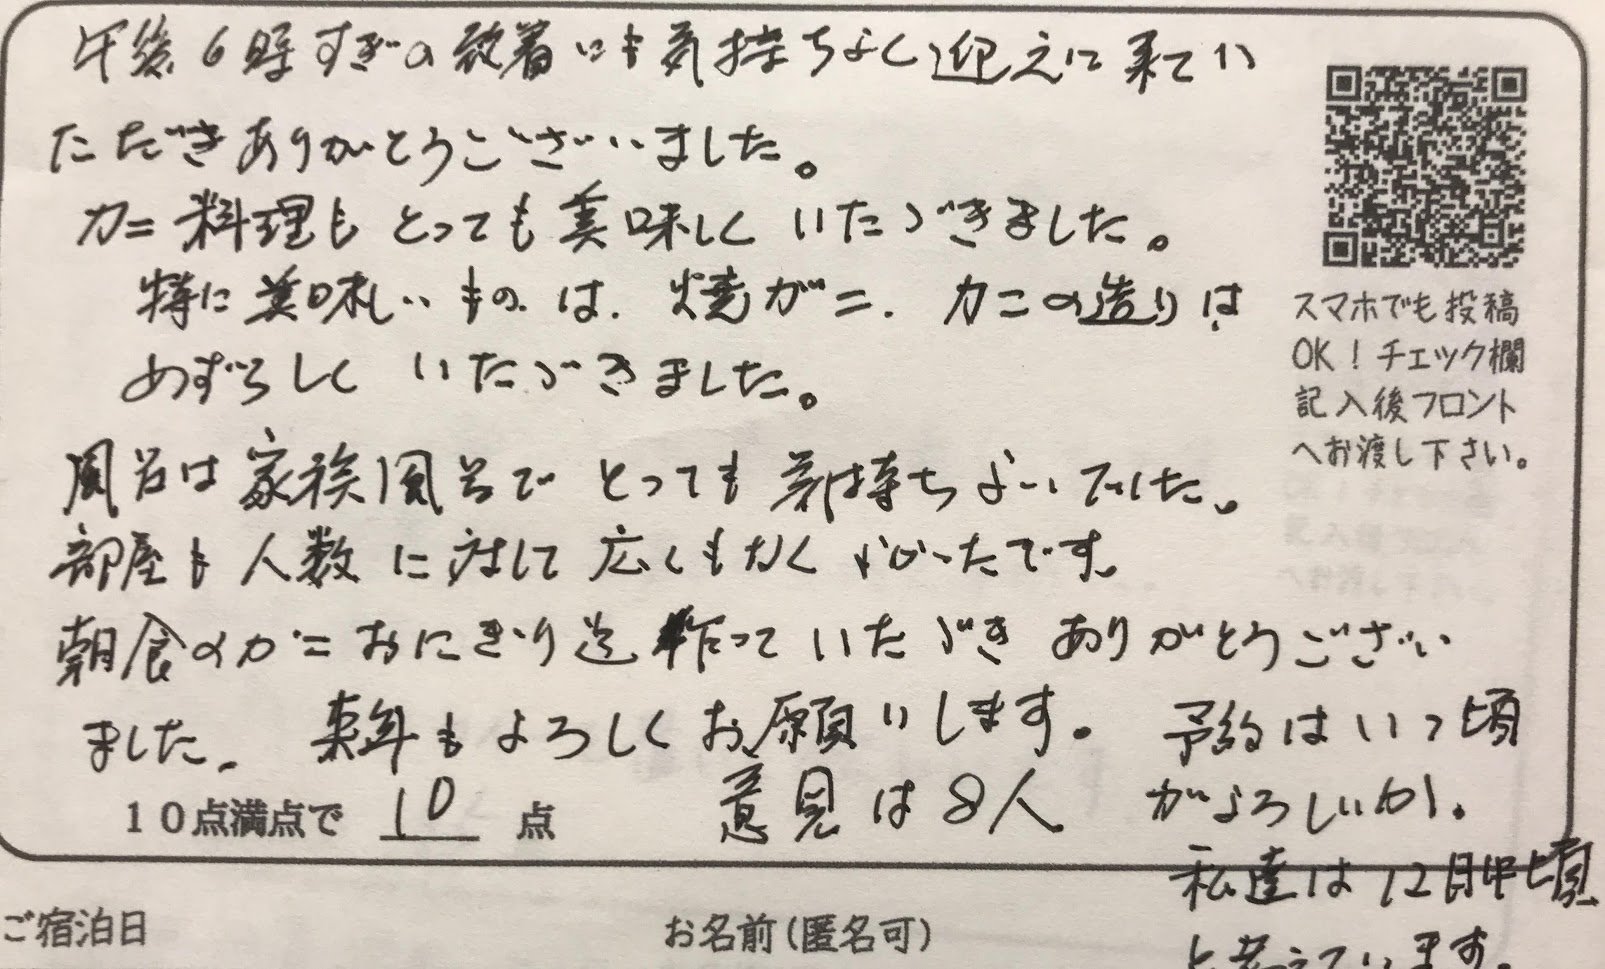 午後6時すぎの到着にも気持ちよく迎えに来てい
ただきありがとうございました。
カニ料理もとっても美味しくいただきました。
特に美味しいものは、焼がニ、カニの造りは
めずらしくいただきました。
風呂は家族風呂でとっても気持ちよいでした。
部屋も人数に対して広くもなくよかったです。
朝食のカニおにぎり迄作っていただきありがとうござい
ました。来年もよろしくお願いします。
意見は8人
予約はいつ頃
がよろしいか。
私達は12月中頃
と考えています。
10点満点で 10 点
スマホでも投稿
OK!チェック欄
記入後フロント
へお渡し下さい。
ご宿泊日
お名前(匿名可)